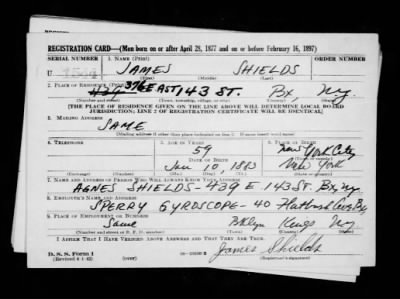 REGISTRATION CARD—(Men born on or after April 28, 1877 and on or before February 16, 1897)
SERIAL NUMBER 1. NAME (Print) ORDER NUMBER
U JAMES SHIELDS
(First) (Middle) (Last)
2. PLACE OF RESIDENCE (Print)
376 EAST 143 ST. Bx, N.y.
(Number and street) (Town, township, village, or city) (County) (State)
[THE PLACE OF RESIDENCE GIVEN ON THE LINE ABOVE WILL DETERMINE LOCAL BOARD
JURISDICTION; LINE 2 OF REGISTRATION CERTIFICATE WILL BE IDENTICAL]
3. MAILING ADDRESS
SAME
[Mailing address if other than place indicated on line 2. If same insert word same]
4. TELEPHONE 5. AGE IN YEARS 6. PLACE OF BIRTH
59 New York City
DATE OF BIRTH
10 1883 New York
7. NAME AND ADDRESS OF PERSON WHO WILL ALWAYS KNOW YOUR ADDRESS
AGNES SHIELDS - 439 E. 143 ST. Bx, N.y.
8. EMPLOYER'S NAME AND ADDRESS
SPERRY GYROSCOPE - 40 Flatbush
9. PLACE OF EMPLOYMENT OR BUSINESS
Same Bklyn Kings N.y.
(Number and street or R. F. D. number) (Town) (County) (State)
I AFFIRM THAT I HAVE VERIFIED ABOVE ANSWERS AND THAT THEY ARE TRUE.
James Shields
D. S. S. Form 1
(Revised 4-1-42) (over) (Registrant's signature)